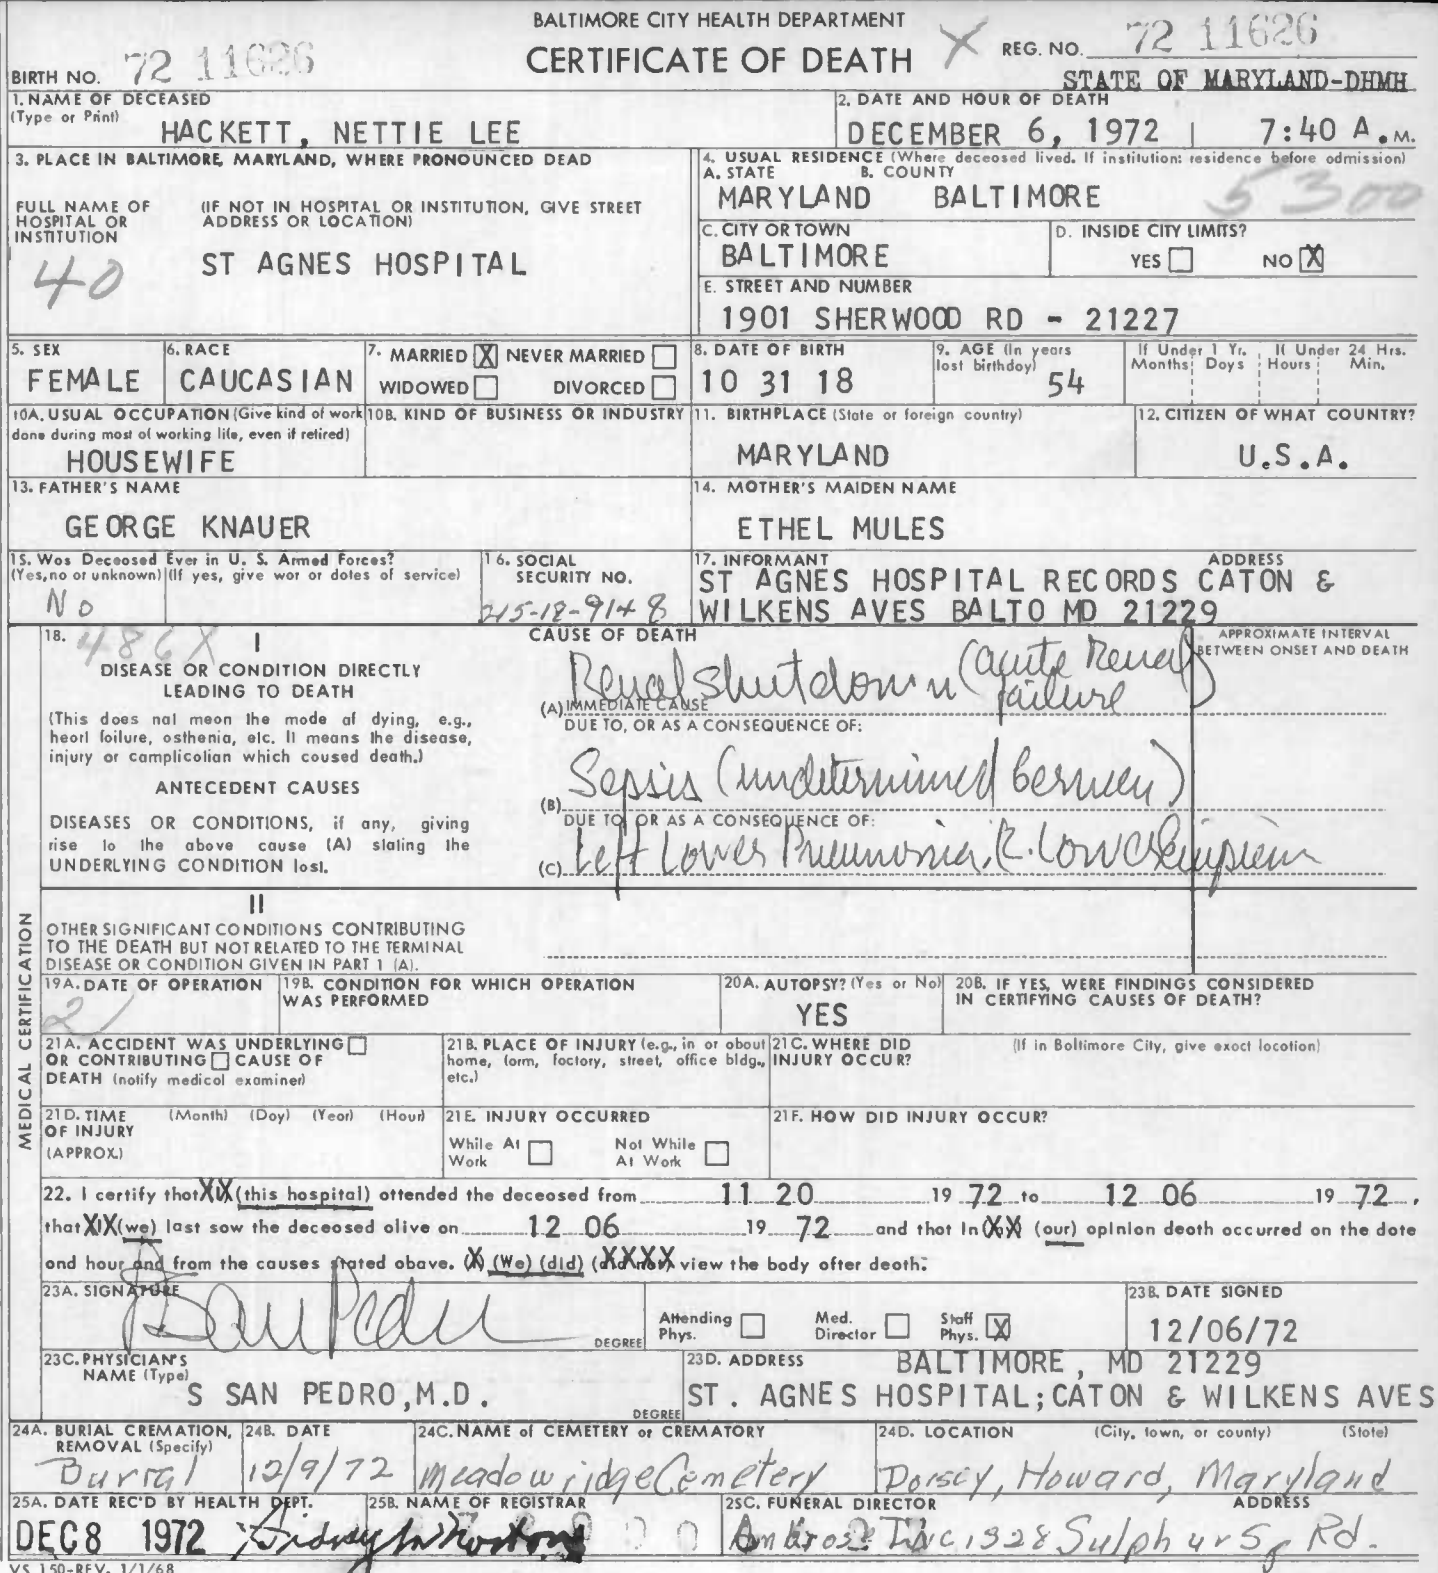 BALTIMORE CITY HEALTH DEPARTMENT
CERTIFICATE OF DEATH
BIRTH NO. 72 11626
REG. NO. 72 11626
STATE OF MARYLAND-DHMH
1. NAME OF DECEASED
(Type or Print)
HACKETT, NETTIE LEE
2. DATE AND HOUR OF DEATH
DECEMBER 6, 1972 | 7:40 A.M.
3. PLACE IN BALTIMORE, MARYLAND, WHERE PRONOUNCED DEAD
FULL NAME OF HOSPITAL OR INSTITUTION
(IF NOT IN HOSPITAL OR INSTITUTION, GIVE STREET ADDRESS OR LOCATION)
40
ST AGNES HOSPITAL
4. USUAL RESIDENCE (Where deceased lived. If institution: residence before admission)
A. STATE B. COUNTY
MARYLAND BALTIMORE 5300
C. CITY OR TOWN
BALTIMORE
D. INSIDE CITY LIMITS?
YES NO X
E. STREET AND NUMBER
1901 SHERWOOD RD - 21227
5. SEX
FEMALE
6. RACE
CAUCASIAN
7. MARRIED X NEVER MARRIED
WIDOWED DIVORCED
8. DATE OF BIRTH
10 31 18
9. AGE (In years last birthday)
54
If Under 1 Yr. If Under 24 Hrs.
Months Days Hours Min.
10A. USUAL OCCUPATION (Give kind of work
done during most of working life, even if retired)
HOUSEWIFE
10B. KIND OF BUSINESS OR INDUSTRY
11. BIRTHPLACE (State or foreign country)
MARYLAND
12. CITIZEN OF WHAT COUNTRY?
U.S.A.
13. FATHER'S NAME
GEORGE KNAUER
14. MOTHER'S MAIDEN NAME
ETHEL MULES
15. Was Deceased Ever in U. S. Armed Forces?
(Yes, no or unknown) (If yes, give war or dates of service)
No
16. SOCIAL SECURITY NO.
215-18-9148
17. INFORMANT ADDRESS
ST AGNES HOSPITAL RECORDS CATON &
WILKENS AVES BALTO MD 21229
18. 486X I
DISEASE OR CONDITION DIRECTLY
LEADING TO DEATH
(This does not mean the mode of dying, e.g.,
heart failure, asthenia, etc. It means the disease,
injury or complication which caused death.)
ANTECEDENT CAUSES
DISEASES OR CONDITIONS, if any, giving
rise to the above cause (A) stating the
UNDERLYING CONDITION last.
CAUSE OF DEATH
APPROXIMATE INTERVAL
BETWEEN ONSET AND DEATH
Renal shutdown (acute Renal failure)
(A) IMMEDIATE CAUSE
DUE TO, OR AS A CONSEQUENCE OF:
(B) Sepsis (undetermined
DUE TO, OR AS A CONSEQUENCE OF:
(C) Left Lower Pneumonia, R. Lower
MEDICAL CERTIFICATION
II
OTHER SIGNIFICANT CONDITIONS CONTRIBUTING
TO THE DEATH BUT NOT RELATED TO THE TERMINAL
DISEASE OR CONDITION GIVEN IN PART 1 (A).
19A. DATE OF OPERATION
2
19B. CONDITION FOR WHICH OPERATION
WAS PERFORMED
20A. AUTOPSY? (Yes or No)
YES
20B. IF YES, WERE FINDINGS CONSIDERED
IN CERTIFYING CAUSES OF DEATH?
21A. ACCIDENT WAS UNDERLYING
OR CONTRIBUTING CAUSE OF
DEATH (notify medical examiner)
21B. PLACE OF INJURY (e.g., in or about
home, farm, factory, street, office bldg.,
etc.)
21C. WHERE DID
INJURY OCCUR?
(If in Baltimore City, give exact location)
21D. TIME (Month) (Day) (Year) (Hour)
OF INJURY
(APPROX.)
21E. INJURY OCCURRED
While At Work
Not While At Work
21F. HOW DID INJURY OCCUR?
22. I certify that XIX (this hospital) attended the deceased from 11 20 19 72 to 12 06 19 72,
that XIX (we) last saw the deceased alive on 12 06 19 72 and that in (XX) (our) opinion death occurred on the date
and hour and from the causes stated above. (X) (We) (did) (did not) view the body after death.
23A. SIGNATURE
DEGREE
Attending Phys.
Med. Director
Staff Phys. X
23B. DATE SIGNED
12/06/72
23C. PHYSICIAN'S
NAME (Type)
S SAN PEDRO, M.D.
DEGREE
23D. ADDRESS BALTIMORE, MD 21229
ST. AGNES HOSPITAL; CATON & WILKENS AVES
24A. BURIAL CREMATION,
REMOVAL (Specify)
Burial
24B. DATE
12/9/72
24C. NAME of CEMETERY or CREMATORY
Meadowridge Cemetery
24D. LOCATION (City, town, or county) (State)
Dorsey, Howard, Maryland
25A. DATE REC'D BY HEALTH DEPT.
DEC 8 1972
25B. NAME OF REGISTRAR
25C. FUNERAL DIRECTOR ADDRESS
Ambrose Inc 1328 Sulphur Sp Rd.
VS 150-REV. 1/1/68